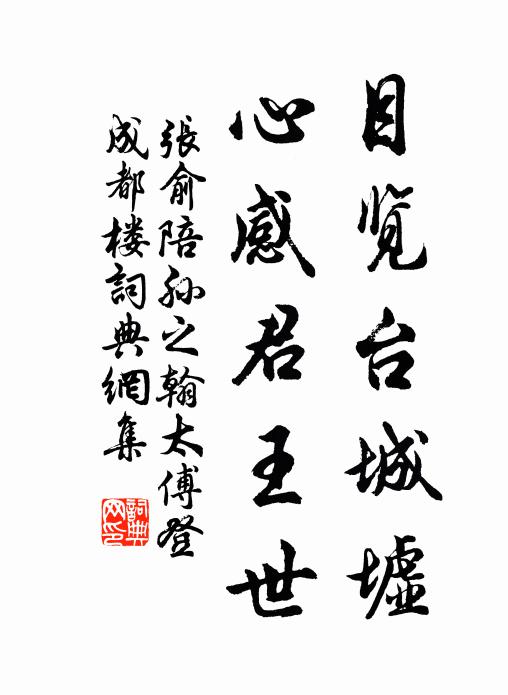 目览台城墟
心感君王世
張俞陪孙之翰太傅登
成都楼詞典網集
詞典网印